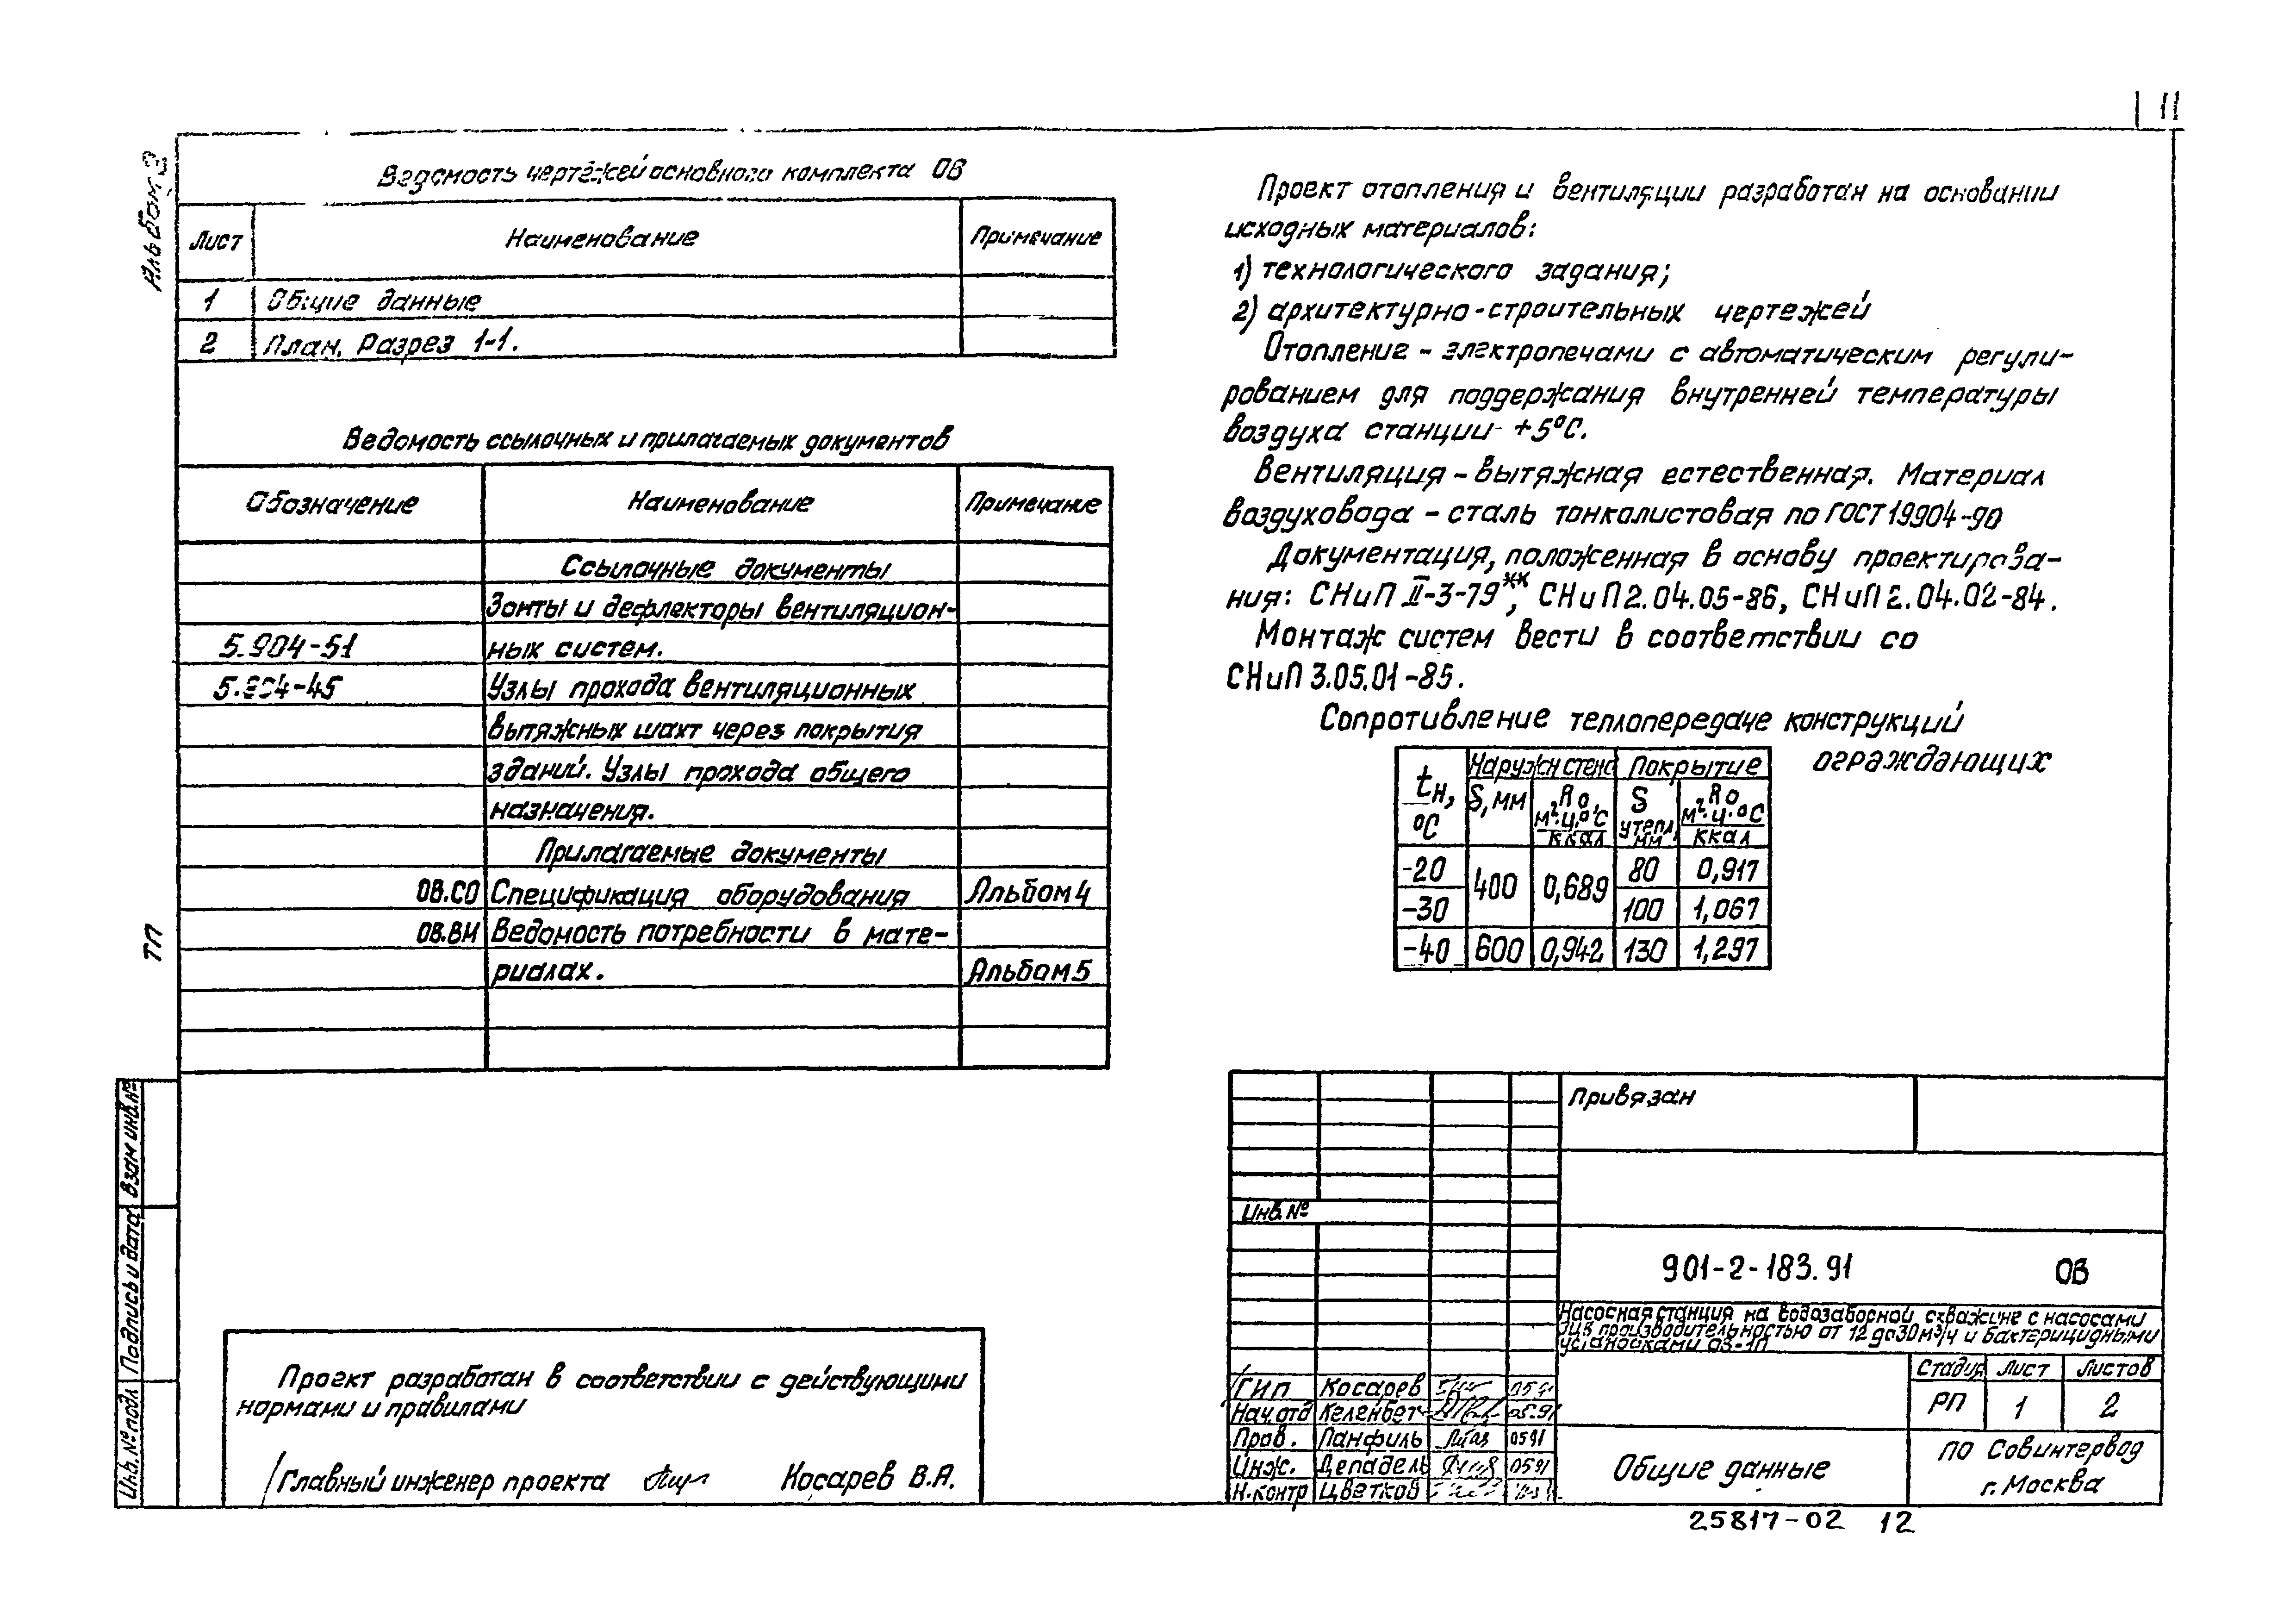 11
Альбом 3
Ведомость чертежей основного комплекта ОВ
Лист Наименование Примечание
1 Общие данные
2 План. Разрез 1-1.
Ведомость ссылочных и прилагаемых документов
Обозначение Наименование Примечание
Ссылочные документы
Зонты и дефлекторы вентиляцион-
5.904-51 ных систем.
5.904-45 Узлы прохода вентиляционных
вытяжных шахт через покрытия
зданий. Узлы прохода общего
назначения.
Прилагаемые документы
ОВ.СО Спецификация оборудования Альбом 4
ОВ.ВМ Ведомость потребности в мате-
риалах. Альбом 5
ТП
Взам инв.№
Подпись и дата
Инв.№ подл
Проект разработан в соответствии с действующими
нормами и правилами
Главный инженер проекта Косарев В.А.
Проект отопления и вентиляции разработан на основании
исходных материалов:
1) технологического задания;
2) архитектурно-строительных чертежей
Отопление - электропечами с автоматическим регули-
рованием для поддержания внутренней температуры
воздуха станции +5°С.
Вентиляция - вытяжная естественная. Материал
воздуховода - сталь тонколистовая по ГОСТ 19904-90
Документация, положенная в основу проектирова-
ния: СНиП II-3-79**, СНиП 2.04.05-86, СНиП 2.04.02-84.
Монтаж систем вести в соответствии со
СНиП 3.05.01-85.
Сопротивление теплопередаче конструкций
ограждающих
tн, °С Наружн стена Покрытие
S, мм Rо м².ч.°С/ккал S утепл, мм Rо м².ч.°С/ккал
-20 400 0,689 80 0,917
-30 100 1,067
-40 600 0,942 130 1,297
Привязан
Инв.№
901-2-183.91 ОВ
Насосная станция на водозаборной скважине с насосами
ЭЦВ производительностью от 12 до 30 м³/ч и бактерицидными
установками ОВ-1П
Стадия Лист Листов
РП 1 2
ГИП Косарев 05.91
Нач.отд Келенбет 05.91
Пров. Панфиль 0591
Инж. Депадель 0591
Н.контр Цветков
Общие данные
ПО Совинтервод
г. Москва
25817-02 12